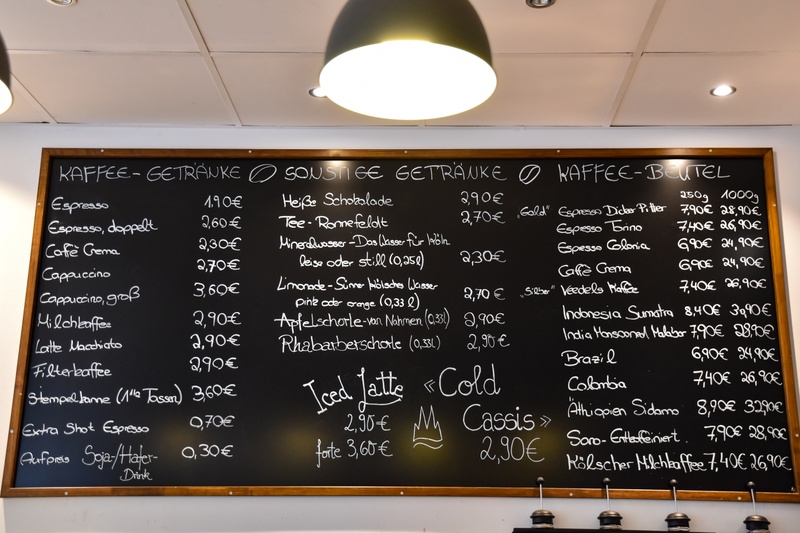 KAFFEE-GETRÄNKE
Espresso 1,90€
Espresso, doppelt 2,60€
Caffè Crema 2,30€
Cappuccino 2,70€
Cappuccino, groß 3,60€
Milchkaffee 2,90€
Latte Macchiato 2,90€
Filterkaffee 2,90€
Stempelkanne (1½ Tassen) 3,60€
Extra Shot Espresso 0,70€
Aufpreis Soja-/Hafer- 0,30€
Drink
SONSTIGE GETRÄNKE
Heiße Schokolade 2,90€
Tee - Ronnefeldt 2,70€
Mineralwasser - Das Wasser für Köln
leise oder still (0,25l) 2,30€
Limonade - Sünner Kölsches Wasser
pink oder orange (0,33l) 2,70€
Apfelschorle - von Nahmen (0,33l) 2,90€
Rhabarberschorle (0,33l) 2,90€
Iced Latte
2,90€
forte 3,60€
«Cold
Cassis»
2,90€
KAFFEE-BEUTEL
250g 1000g
„Gold“ Espresso Ritter 7,90€ 28,90€
Espresso Torino 7,40€ 26,90€
Espresso Colonia 6,90€ 24,90€
Caffè Crema 6,90€ 24,90€
„Silber“ Veedels Kaffee 7,40€ 26,90€
Indonesia Sumatra 8,40€ 30,90€
India Monsooned Malabar 7,90€ 28,90€
Brazil 6,90€ 24,90€
Colombia 7,40€ 26,90€
Äthiopien Sidamo 8,90€ 32,90€
Entkoffeiniert 7,90€ 28,90€
Kölscher Milchkaffee 7,40€ 26,90€